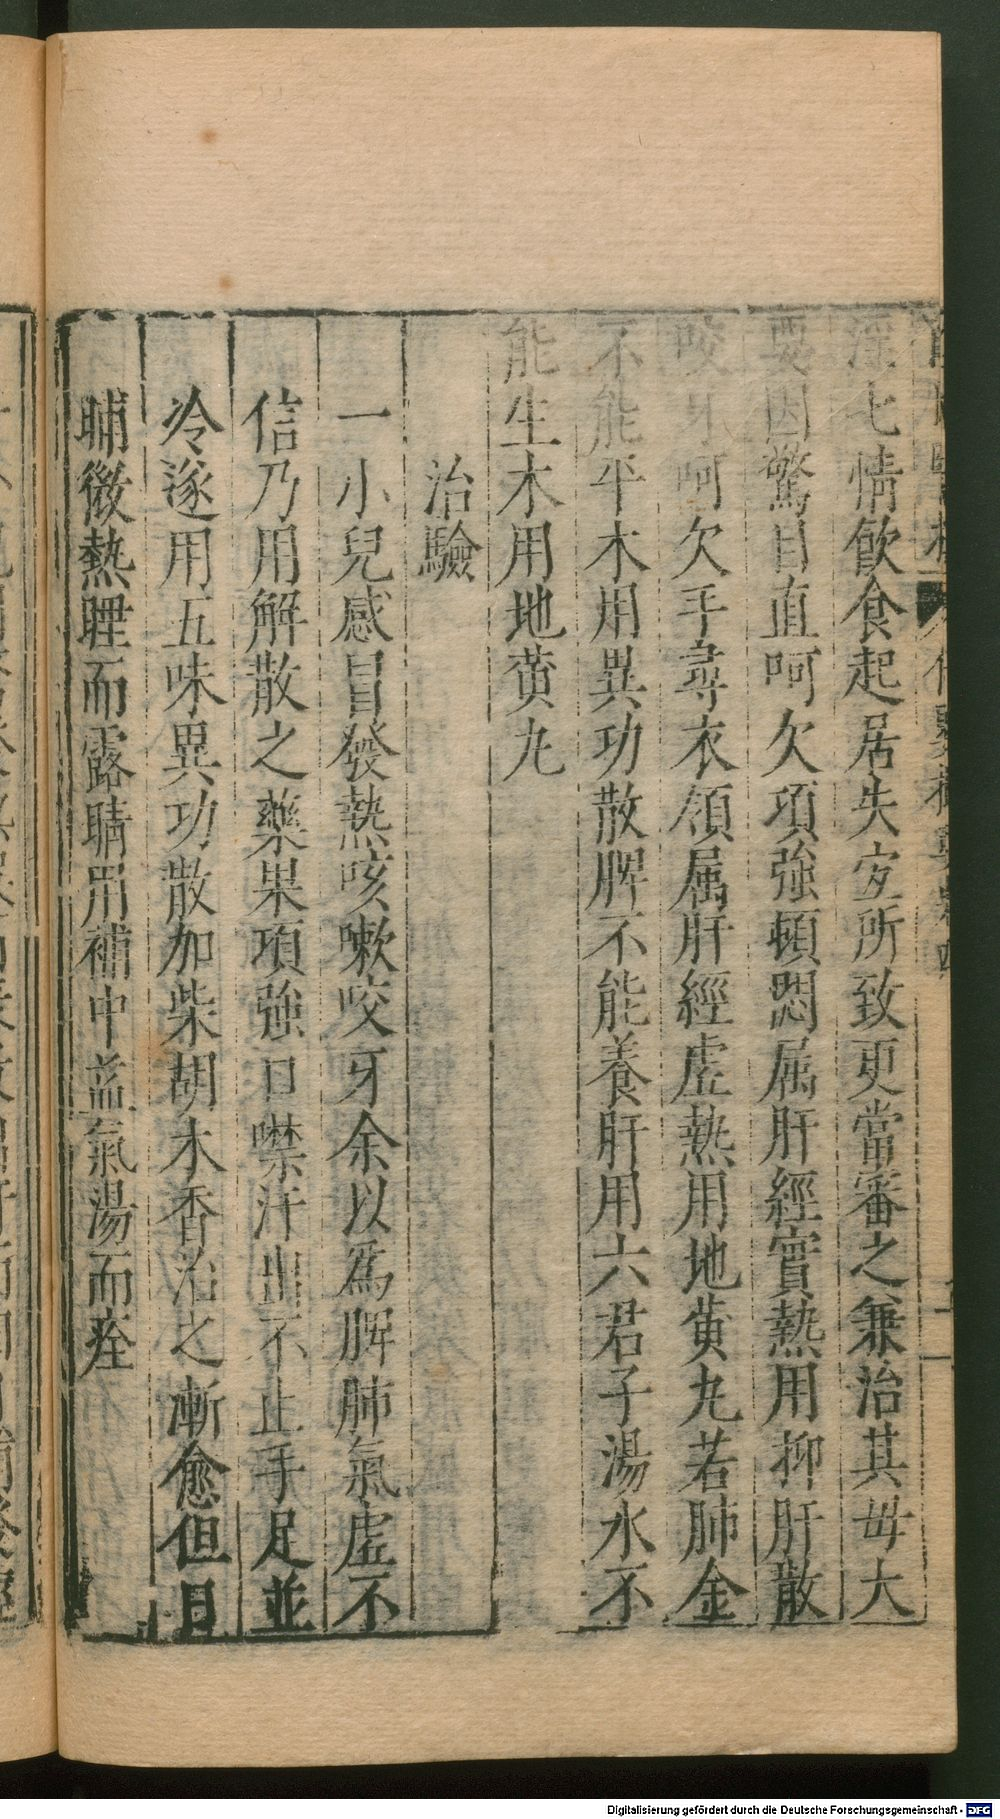 淫七情飲食起居失宜所致更當審之兼治其母大
要因驚目直呵欠項強頓悶属肝經實熱用抑肝散
咬牙呵欠手尋衣領属肝經虛熱用地黄丸若肺金
不能平木用異功散脾不能養肝用六君子湯水不
能生木用地黄丸
治驗
一小兒感冒發熱咳嗽咬牙余以爲脾肺氣虛不
信乃用解散之藥果項強口噤汗出不止手足並
冷遂用五味異功散加柴胡木香治之漸愈但日
晡微熱睡而露睛用補中益氣湯而痊
Digitalisierung gefördert durch die Deutsche Forschungsgemeinschaft - DFG